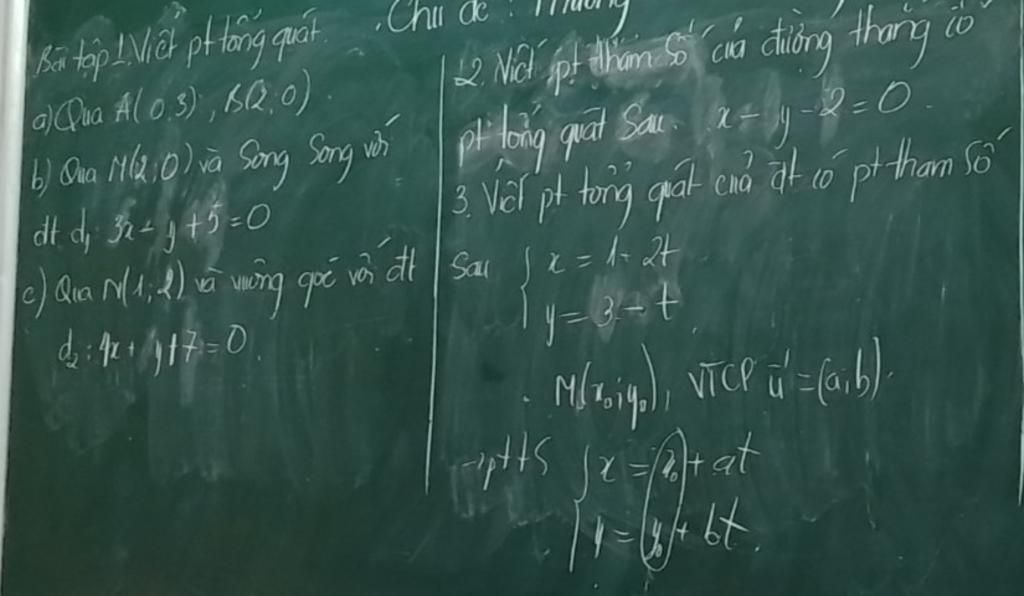 Chủ đề:
Bài tập 1. Viết pt tổng quát
a) Qua A(0,3), B(2,0)
b) Qua M(2;0) và Song Song với
đt d₁ 3x - y + 5 = 0
c) Qua N(1;2) và vuông góc với đt
d₂: 4x + y + 7 = 0.
2. Viết pt tham số của đường thẳng có
pt tổng quát sau. x - y - 2 = 0.
3. Viết pt tổng quát của đt có pt tham số
sau { x = 1 - 2t
y = 3 - t
M(x₀; y₀), VTCP u⃗ = (a, b).
→ ptts { x = x₀ + at
y = y₀ + bt.